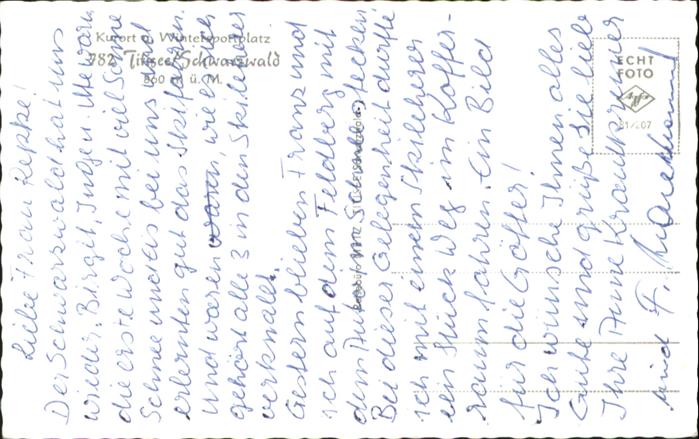 Kurort u. Wintersportplatz
782 Titisee/Schwarzwald
860 m ü. M.
ECHT
FOTO
Agfa
Liebe Frau Repke!
Der Schwarzwald hat uns
wieder. Birgit, Jürgen, Ute waren
die erste Woche mit viel Sonne
Schnee und Eis bei uns und
erlernten gut das Skifahren.
Und waren, wie es sich
gehört alle 3 in den Skilehrer
verknallt.
Gestern blieben Franz und
ich auf dem Feldberg mit
dem Auto im Schnee stecken,
Bei dieser Gelegenheit durfte
ich mit einem Skilehrer
ein Stück Weg im Koffer-
raum fahren. Ein Bild
für die Götter!
Ich wünsche Ihnen alles
Gute und grüße Sie lieb
Ihre Anne
und F.